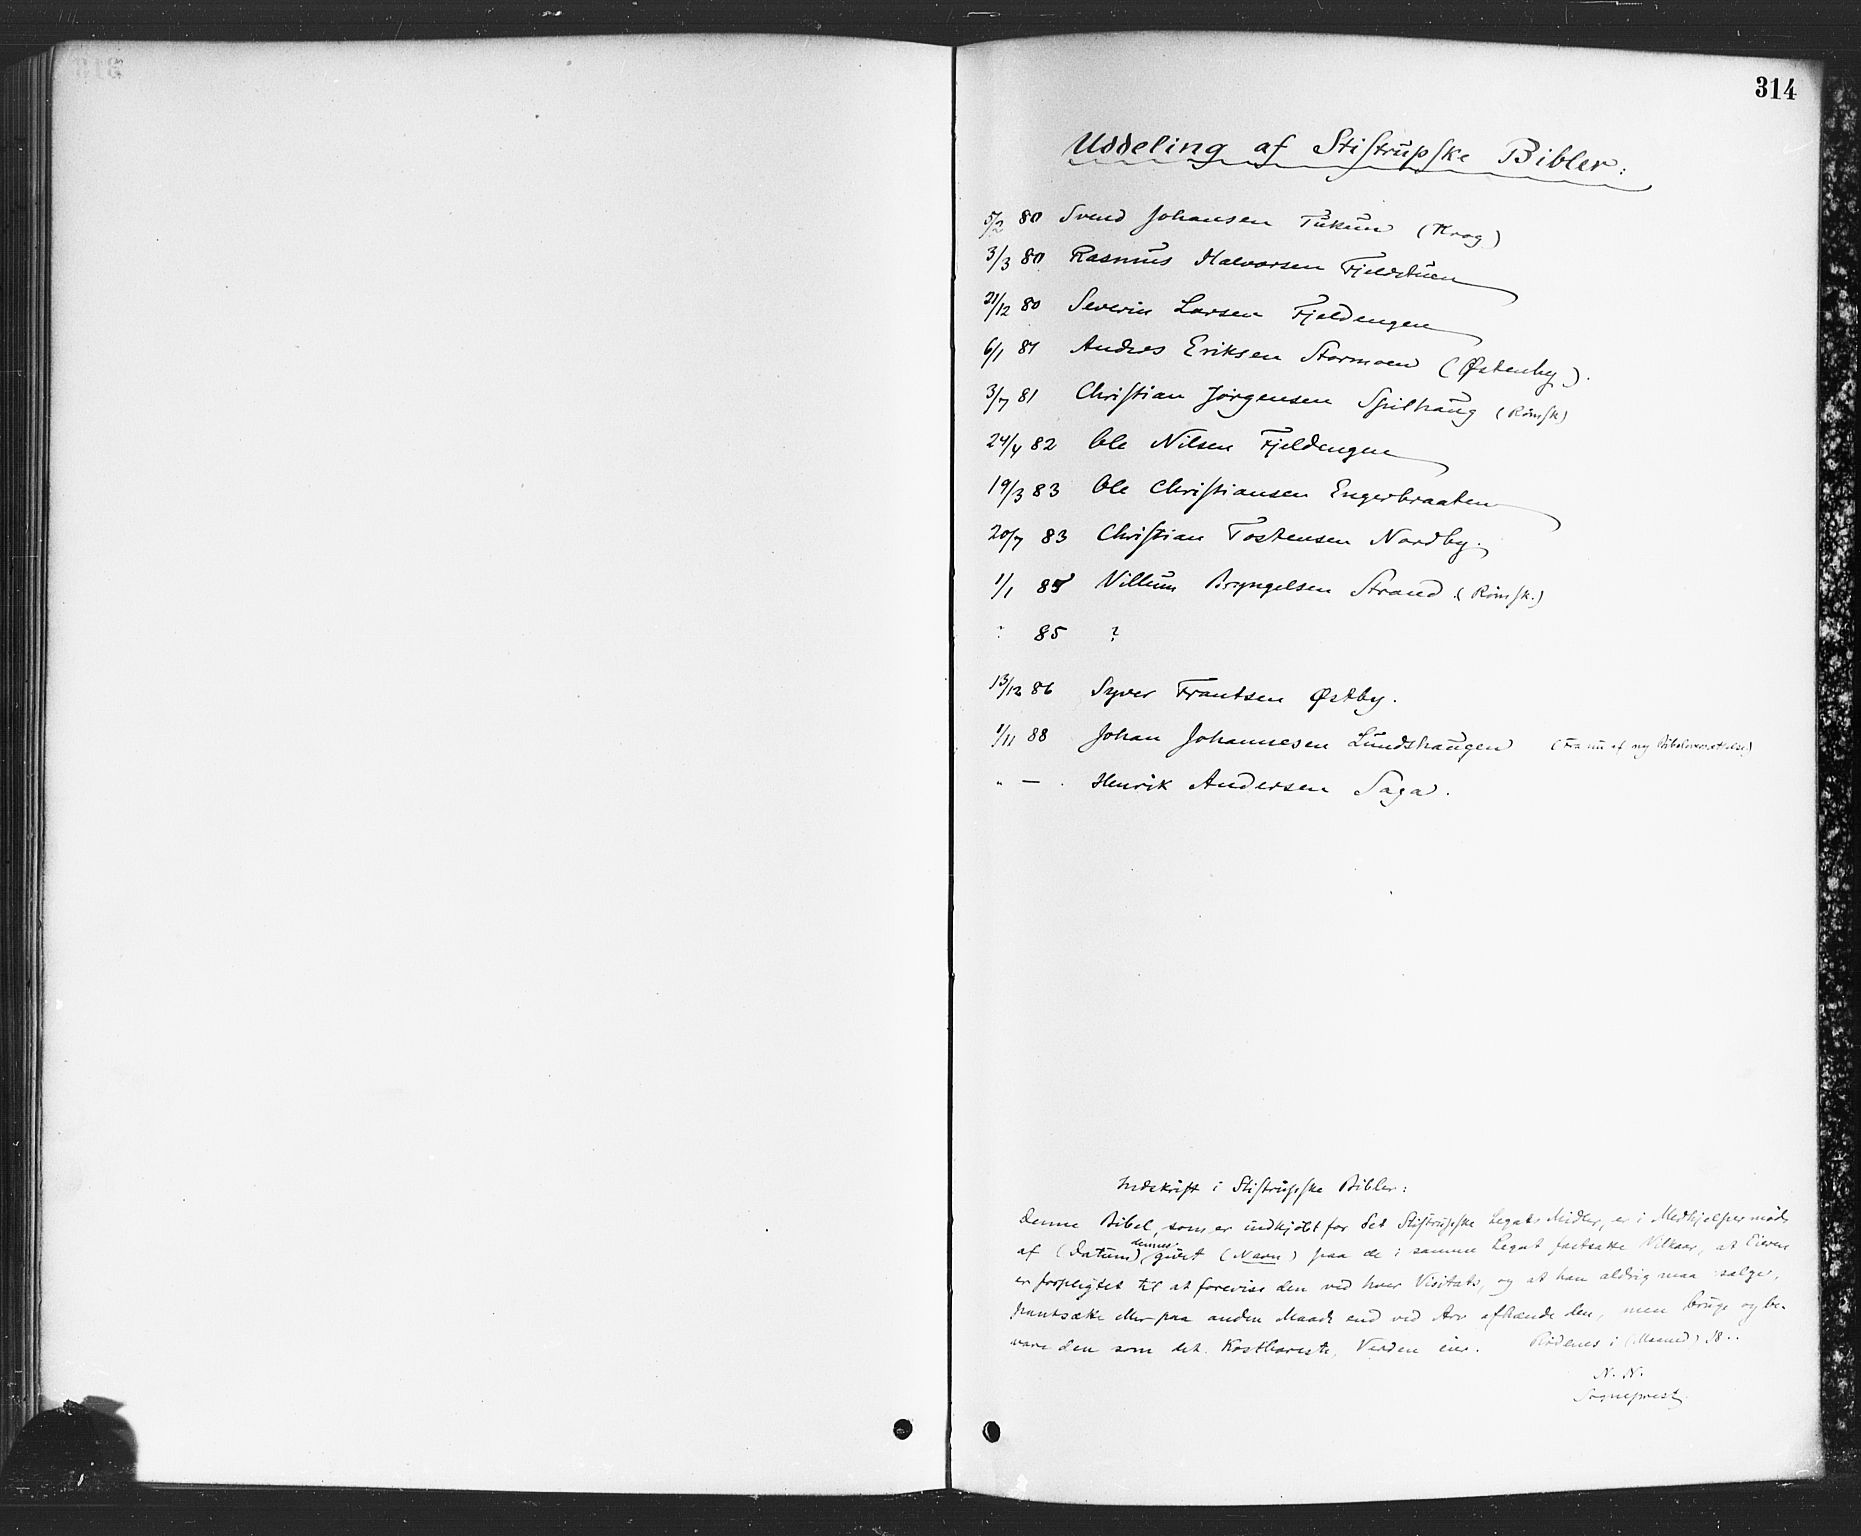 314
Uddeling af Stistrupske Bibler:
5/2 80 Svend Johansen Tukun (Krog)
3/3 80 Rasmus Halvorsen Fjeldstuen
21/12 80 Severin Larsen Fjeldengen
6/1 81 Andres Eriksen Stormoen (Østenby).
3/7 81 Christian Jørgensen Spilhaug (Römsk)
24/4 82 Ole Nilsen Fjeldengen
19/3 83 Ole Christiansen Engerbraaten
20/7 83 Christian Tostensen Nordby.
1/1 85 Villum Bryngelsen Strand (Römsk.)
" 85 ?
13/12 86 Syver Frantsen Østby.
1/11 88 Johan Johannesen Lundshaugen (Fra nu af ny Bibeloversættelse)
" — . Henrik Andersen Saga.
Indskrift i Stistrupske Bibler:
Denne Bibel, som er indkjøbt for det Stistrupske Legats Midler, er i Medhjelpermøde
af (Datum) dennes givet (Navn) paa de i samme Legat fastsatte Vilkaar, at Eieren
er forpligtet til at forevise den ved hver Visitats, og at han aldrig maa sælge,
pantsætte eller paa anden Maade end ved Arv afhænde den, men bruge og be-
vare den som det Kostbareste, Verden eier. Rødenes i (Maaned) 18..
N. N.
Sogneprest